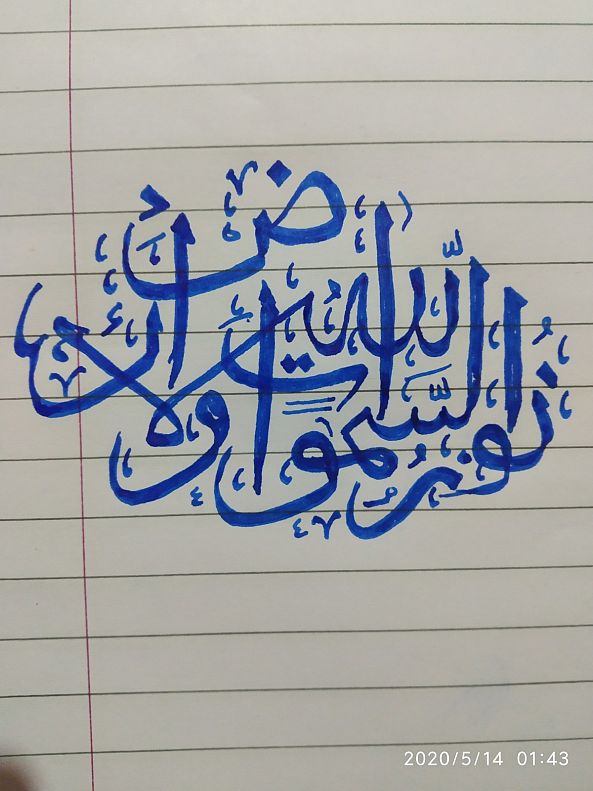 اللّٰهُ نُورُ السَّمٰوَاتِ وَالْأَرْضِ
2020/5/14 01:43